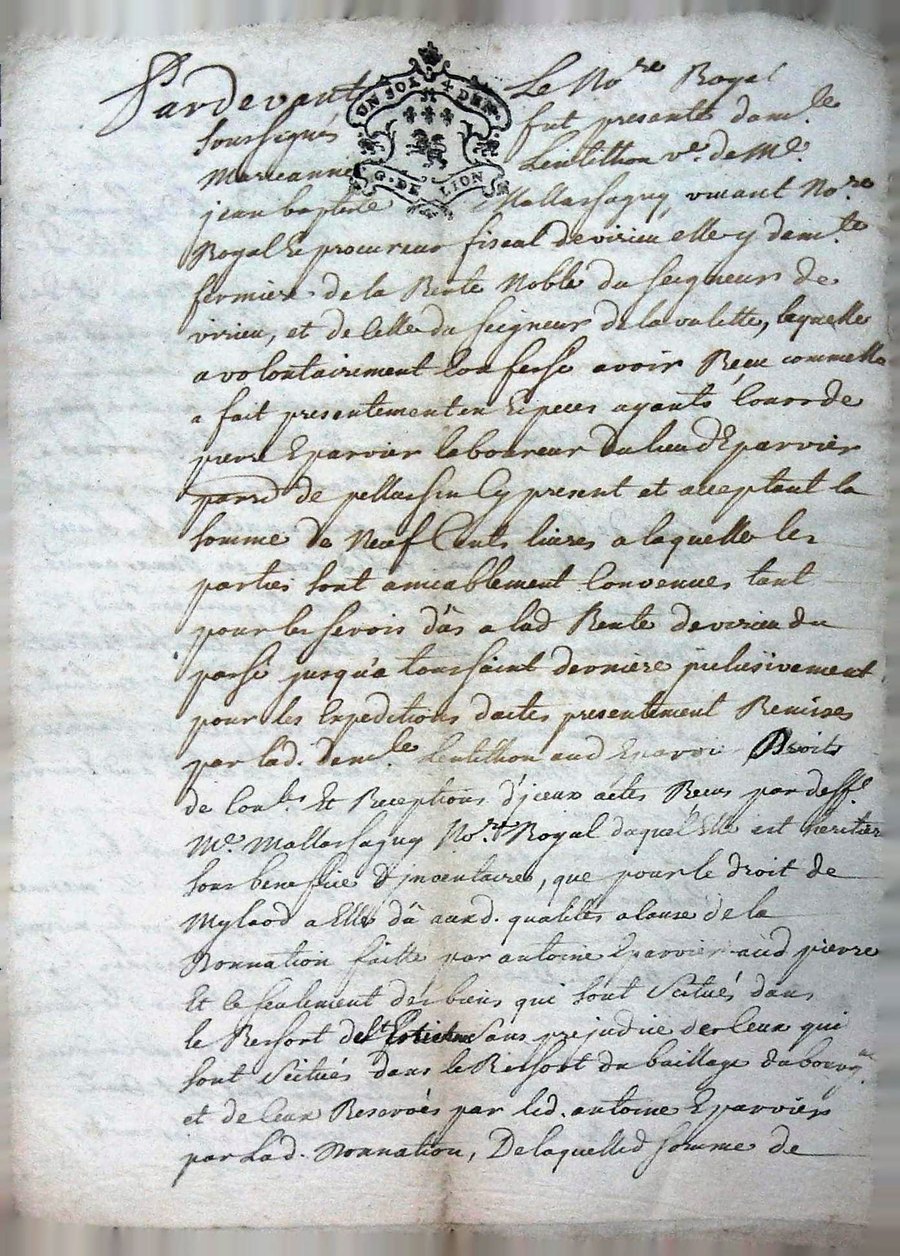 Pardevant Le No.re Royal
UN SOL 4 DEN
G. DE LION
soussignés fut presente dam.lle
Marianne Lentillon v.e de M.e
jean baptiste Mallassagny, vivant No.re
Royal Et procureur fiscal de virieu elle y dem.te
fermiere de la Rente Noble du seigneur de
virieu, et de Celle du seigneur de la valette, laquelle
a volontairement Confessé avoir Receu comme Elle
a fait presentement en Especes ayants Cours de
pierre Eparvier laboureur du lieu d'Eparvier
parr.e de pellussin Cy present et acceptant la
somme de Neuf Cents livres a laquelle les
parties sont amiablement Convenues tant
pour les servis dûs a lad Rente de virieu du
passé jusqu'a toussaint derniere inclusivement
pour les Expeditions d'actes presentement Remises
par lad. dam.lle Lentillon aud Eparvier Droits
de Con.le Et Receptions d'jceux actes Receus par deff.t
M.e Mallassagny No.re Royal duquel Elle est heritiere
sous benefice d'jnventaire, que pour le droit de
Mylaod a Elle dû aud. qualités a Cause de la
Donnation faitte par antoine Eparvier aud pierre
Et ce seulement des biens qui sont scitués dans
le Ressort de St Estienne sans prejudice de Ceux qui
sont scitués dans le Ressort du baillage du bourg.al
et de Ceux Reservés par led. antoine Eparvier
par Lad. Donnation, De laquelle d somme de